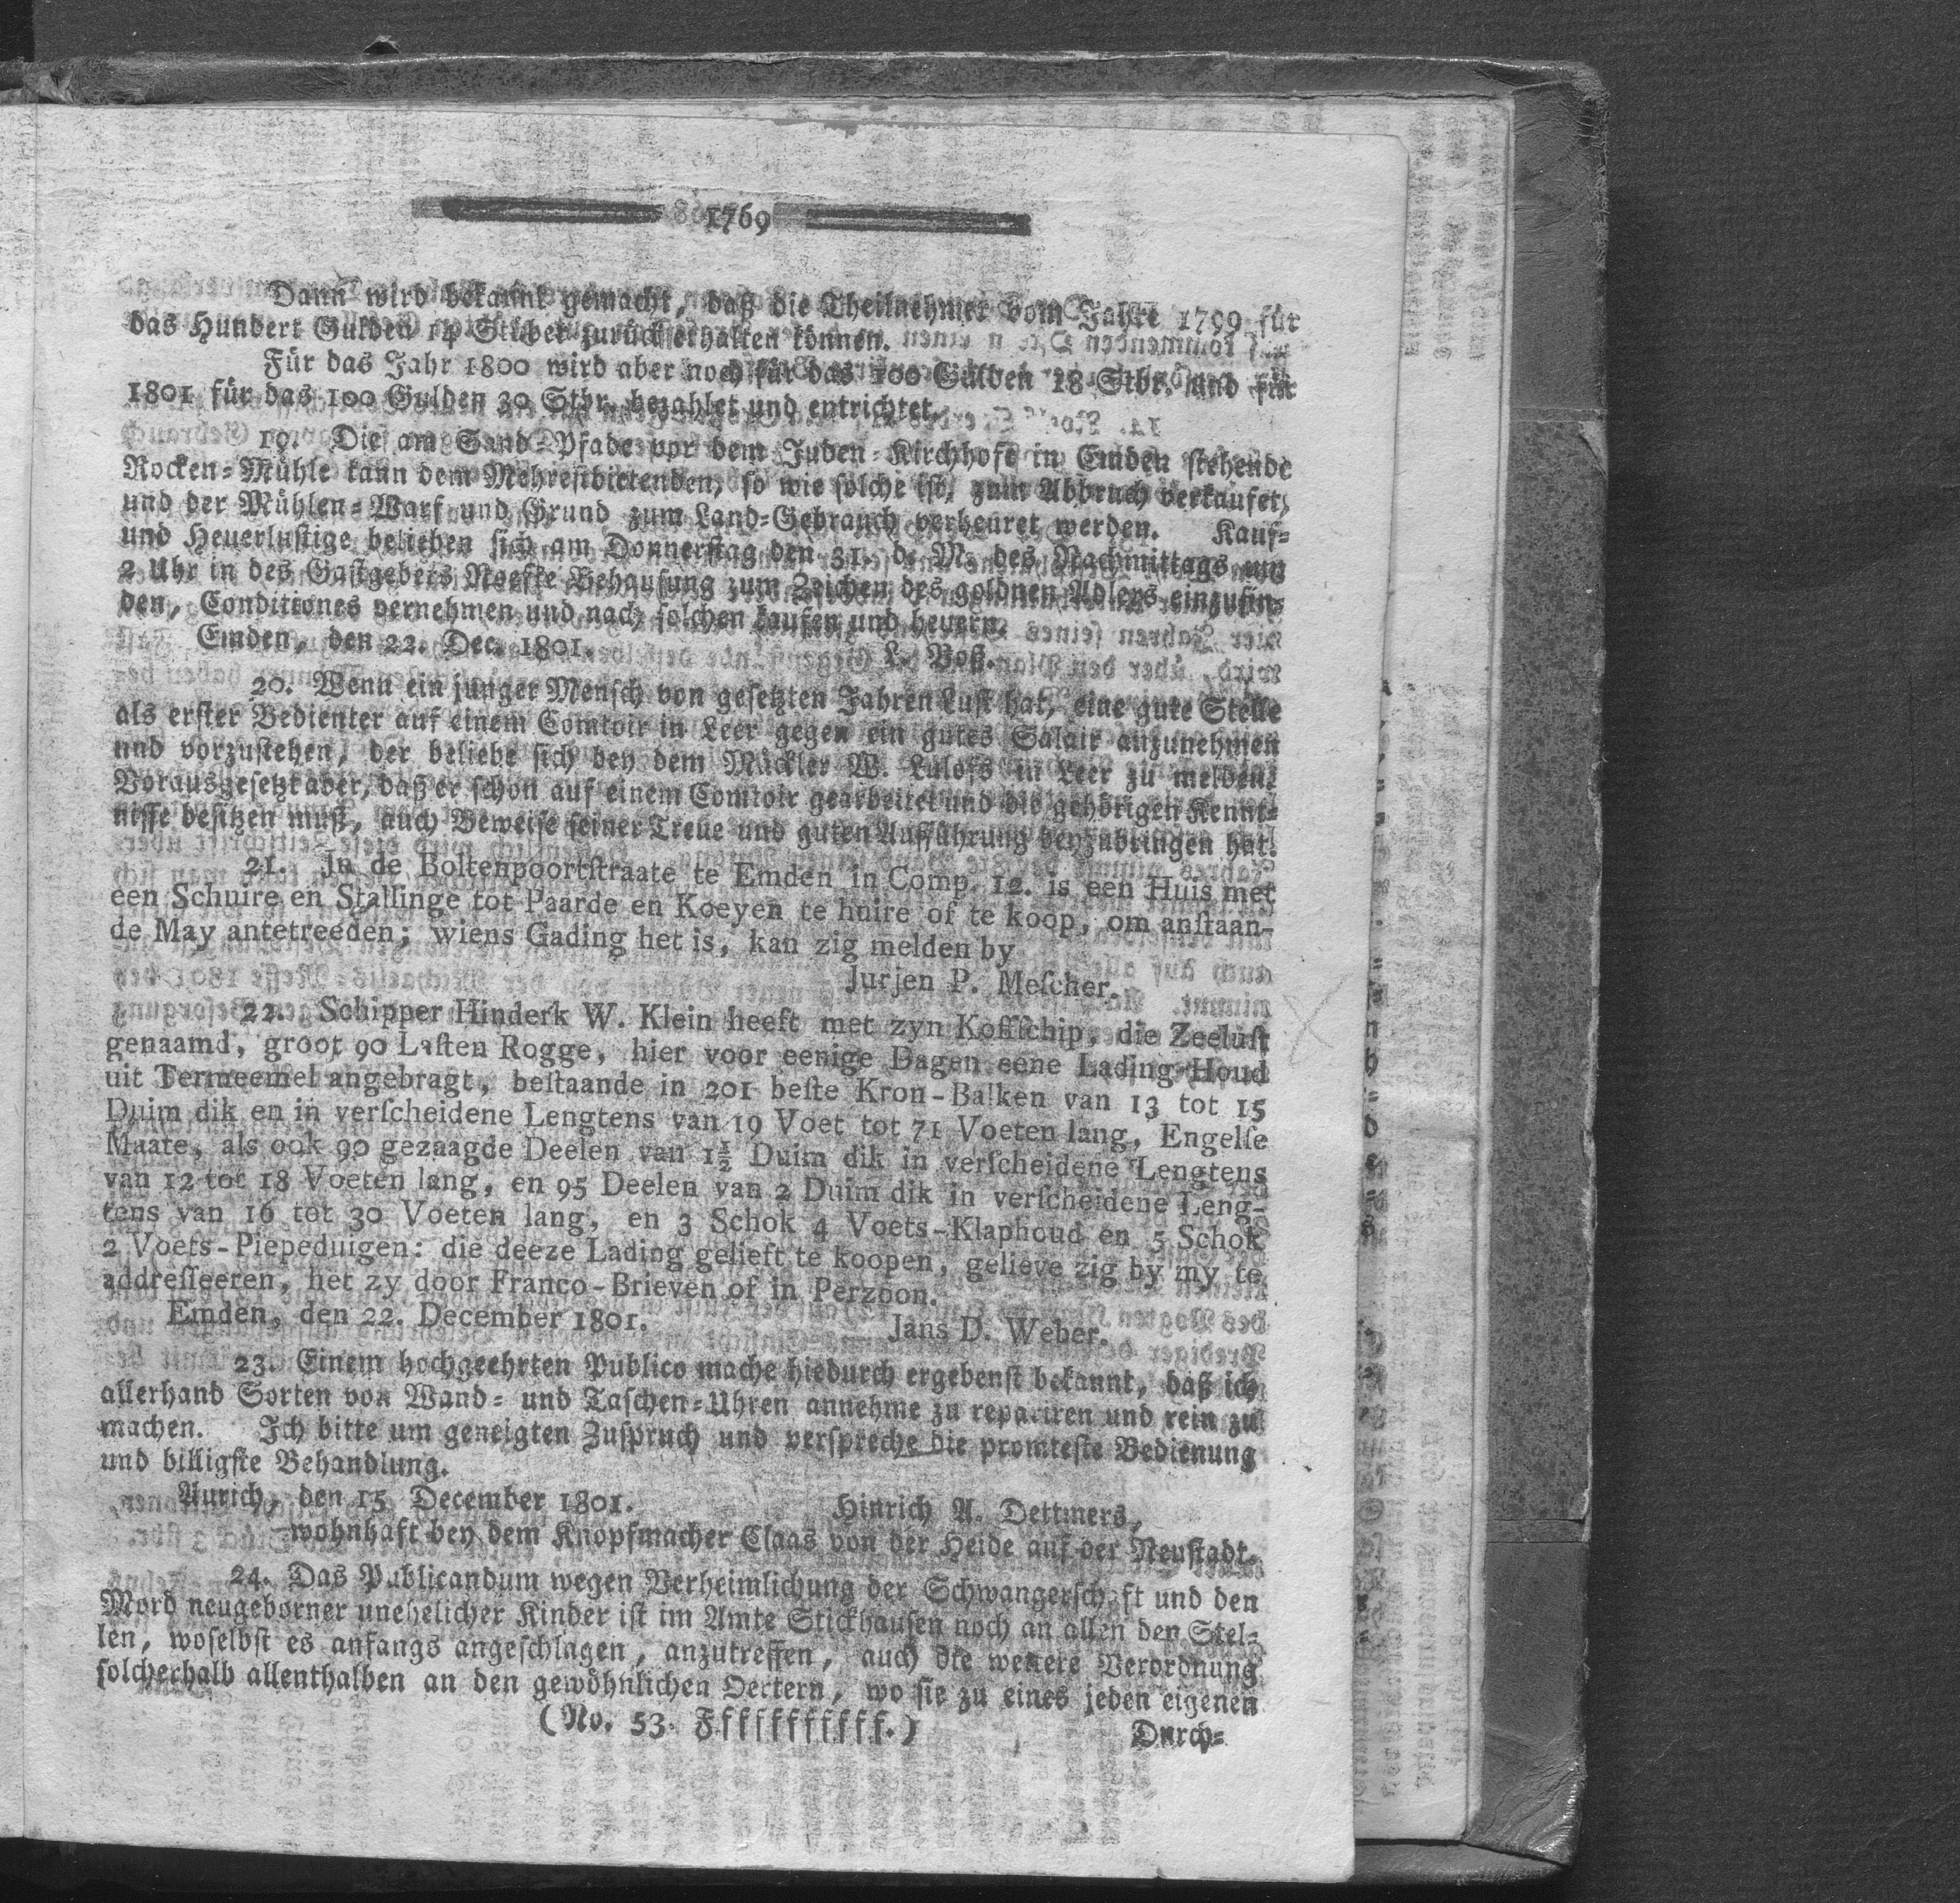 1769
Dann wird bekannt gemacht, daß die Theilnehmer vom Jahre 1799 für
das Hundert Gulden 14 Stüber zurück erhalten können.
Für das Jahr 1800 wird aber noch für das 100 Gulden 18 Stbr. und für
1801 für das 100 Gulden 30 Stbr. bezahlet und entrichtet.
19. Die am Sand-Pfade vor dem Juden-Kirchhofe in Emden stehende
Rocken-Mühle kann dem Mehrestbietenden, so wie solche ist, zum Abbruch verkaufet,
und der Mühlen-Warf und Grund zum Land-Gebrauch verheuret werden. Kauf-
und Heuerlustige belieben sich am Donnerstag den 31. d. M. des Nachmittags um
2 Uhr in des Gastgebers Behausung zum Zeichen des goldnen Adlers einzufin-
den, Conditiones vernehmen und nach solchen kaufen und heuern.
Emden, den 22. Dec. 1801. L. Voß.
20. Wenn ein junger Mensch von gesetzten Jahren Lust hat, eine gute Stelle
als erster Bedienter auf einem Comtoir in Leer gegen ein gutes Salair anzunehmen
und vorzustehen, der beliebe sich bey dem Mäckler W. Lulofs in Leer zu melden.
Vorausgesetzt aber, daß er schon auf einem Comtoir gearbeitet und die gehörigen Kennt-
nisse besitzen muß, auch Beweise seiner Treue und guten Aufführung beyzubringen hat.
21. In de Boltenpoortſtraate te Emden in Comp. 12. is een Huis met
een Schuire en Stallinge tot Paarde en Koeyen te huire of te koop, om anſtaan-
de May antetreeden; wiens Gading het is, kan zig melden by
Jurjen P. Meſcher.
22. Schipper Hinderk W. Klein heeft met zyn Koffſchip, die Zeeluſt
genaamd, groot 90 Laſten Rogge, hier voor eenige Dagen eene Lading Houd
uit Termeemel angebragt, beſtaande in 201 beſte Kron-Balken van 13 tot 15
Duim dik en in verſcheidene Lengtens van 19 Voet tot 71 Voeten lang, Engelſe
Maate, als ook 90 gezaagde Deelen van 1½ Duim dik in verſcheidene Lengtens
van 12 tot 18 Voeten lang, en 95 Deelen van 2 Duim dik in verſcheidene Leng-
tens van 16 tot 30 Voeten lang, en 3 Schok 4 Voets-Klaphoud en 5 Schok
2 Voets-Piepeduigen: die deeze Lading gelieft te koopen, gelieve zig by my te
addreſſeeren, het zy door Franco-Brieven of in Perzoon.
Emden, den 22. December 1801. Jans D. Weber.
23. Einem hochgeehrten Publico mache hiedurch ergebenst bekannt, daß ich
allerhand Sorten von Wand- und Taschen-Uhren annehme zu repariren und rein zu
machen. Ich bitte um geneigten Zuspruch und verspreche die promteste Bedienung
und billigste Behandlung.
Aurich, den 15 December 1801. Hinrich A. Dettmers,
wohnhaft bey dem Knopfmacher Claas von der Heide auf der Neustadt.
24. Das Publicandum wegen Verheimlichung der Schwangerschaft und den
Mord neugeborner unehelicher Kinder ist im Amte Stickhausen noch an allen den Stel-
len, woselbst es anfangs angeschlagen, anzutreffen, auch die weitere Verordnung
solcherhalb allenthalben an den gewöhnlichen Oertern, wo sie zu eines jeden eigenen
(No. 53. Ffffffffff.) Durch-